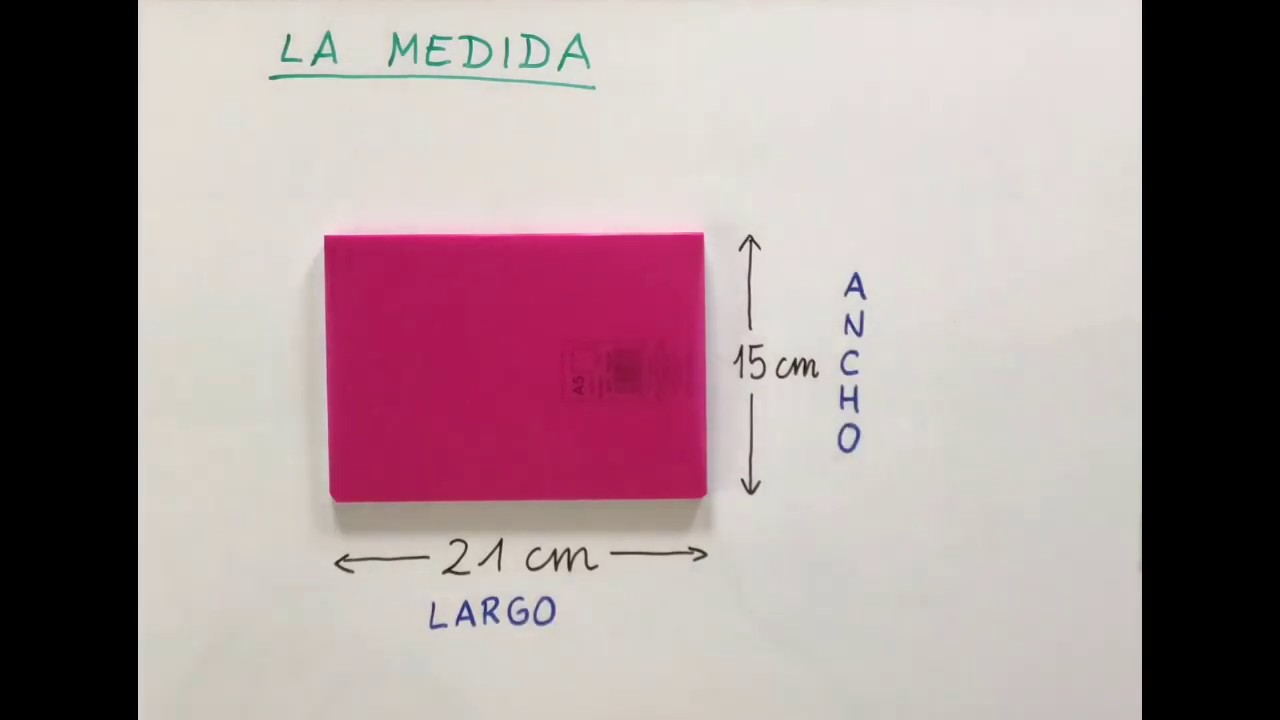 LA MEDIDA
A5
15 cm
ANCHO
21 cm
LARGO